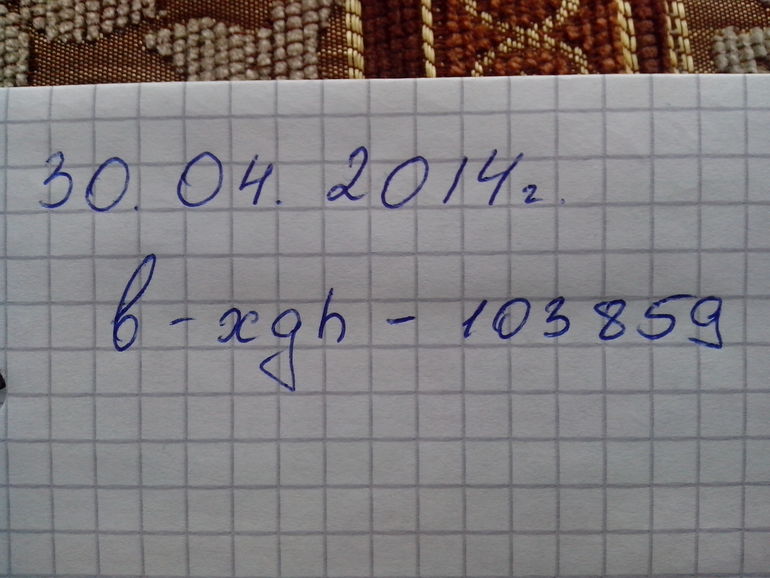 30. 04. 2014г.
b - xgh - 103859